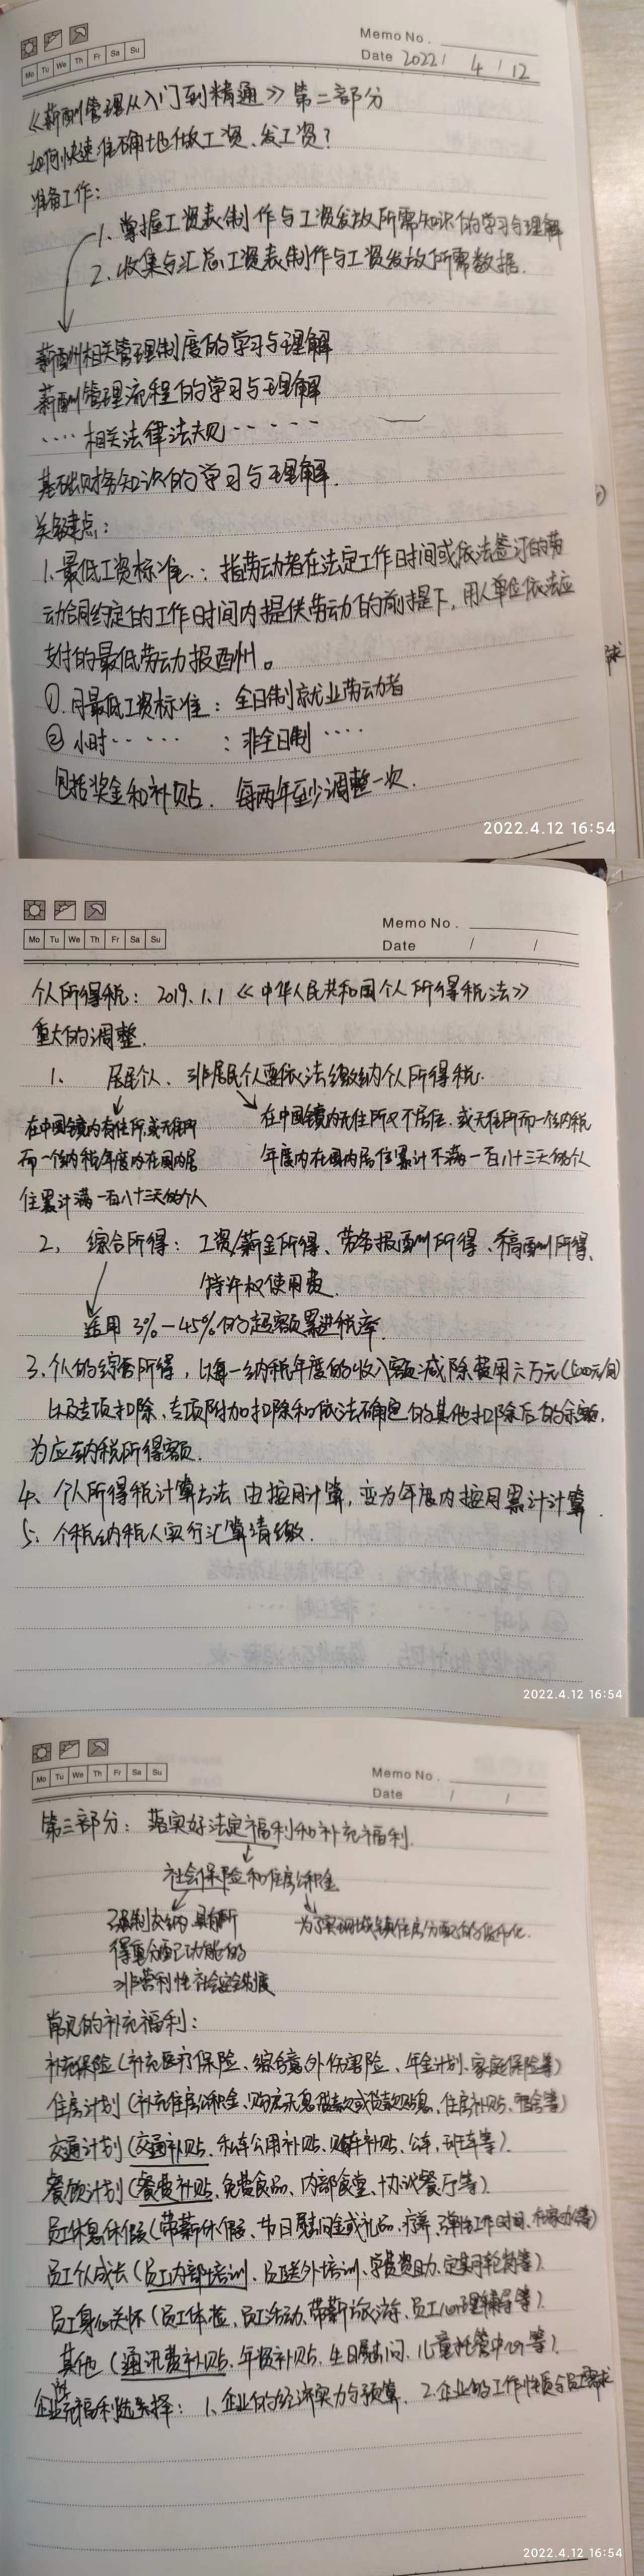 Memo No.
Mo Tu We Th Fr Sa Su
Date 2022 / 4 / 12
《薪酬管理从入门到精通》第二部分
如何快速准确地做工资、发工资?
准备工作:
1. 掌握工资表制作与工资发放所需知识的学习与理解
2. 收集与汇总工资表制作与工资发放所需数据.
薪酬相关管理制度的学习与理解
薪酬管理流程的学习与理解
····相关法律法规·····
基础财务知识的学习与理解.
关键点:
1. 最低工资标准: 指劳动者在法定工作时间或依法签订的劳
动合同约定的工作时间内提供劳动力的前提下, 用人单位依法应
支付的最低劳动力报酬。
①. 月最低工资标准: 全日制就业劳动者
② 小时····· : 非全日制····
包括奖金和补贴. 每两年至少调整一次.
2022.4.12 16:54
Memo No.
Mo Tu We Th Fr Sa Su
Date / /
个人所得税: 2019.1.1《中华人民共和国个人所得税法》
重大的调整.
1. 居民个人、非居民个人要依法缴纳个人所得税.
在中国镜内有住所,或无住所
而一个纳税年度内在国内居
住累计满一百八十三天的个人
在中国镜内无住所又不居住, 或无住所而一个纳税
年度内在国内居住累计不满一百八十三天的个人
2, 综合所得: 工资/薪金所得、劳务报酬所得、稿酬所得、
特许权使用费.
适用3%-45%的超额累进税率.
3. 个人的综合所得, 以每一纳税年度的收入额减除费用六万元(5000元/月)
以及专项扣除、专项附加扣除和依法确定的其他扣除后的余额,
为应纳税所得额.
4、个人所得税计算方法 由按月计算, 变为年度内按月累计计算.
5、个税纳税人实行汇算清缴.
2022.4.12 16:54
Memo No.
Mo Tu We Th Fr Sa Su
Date / /
第三部分: 落实好法定福利和补充福利.
社会保险和住房公积金
强制交纳, 具有所
得重分配功能的
非营利性社会安全制度
为了实现城镇住房分配的货币化.
常见的补充福利:
补充保险(补充医疗保险、综合意外伤害险、年金计划、家庭保险等)
住房计划(补充住房公积金、购房无息借款或贷款贴息、住房补贴、宿舍等)
交通计划(交通补贴、私车公用补贴、购车补贴、公车、班车等).
餐饮计划(餐费补贴、免费食品、内部食堂、协议餐厅等).
员工休息休假(带薪休假、节日慰问金或礼品、疗养、弹性工作时间、在家办等)
员工个人成长(员工内部培训、员工送外培训、学费资助、定期轮岗等).
员工身心关怀(员工体检、员工活动、带薪旅游、员工心理辅导等).
其他(通讯费补贴、年资补贴、生日慰问、儿童托管中心等).
企业补充福利选择: 1. 企业的经济实力与预算. 2. 企业的工作性质与员工需求
2022.4.12 16:54